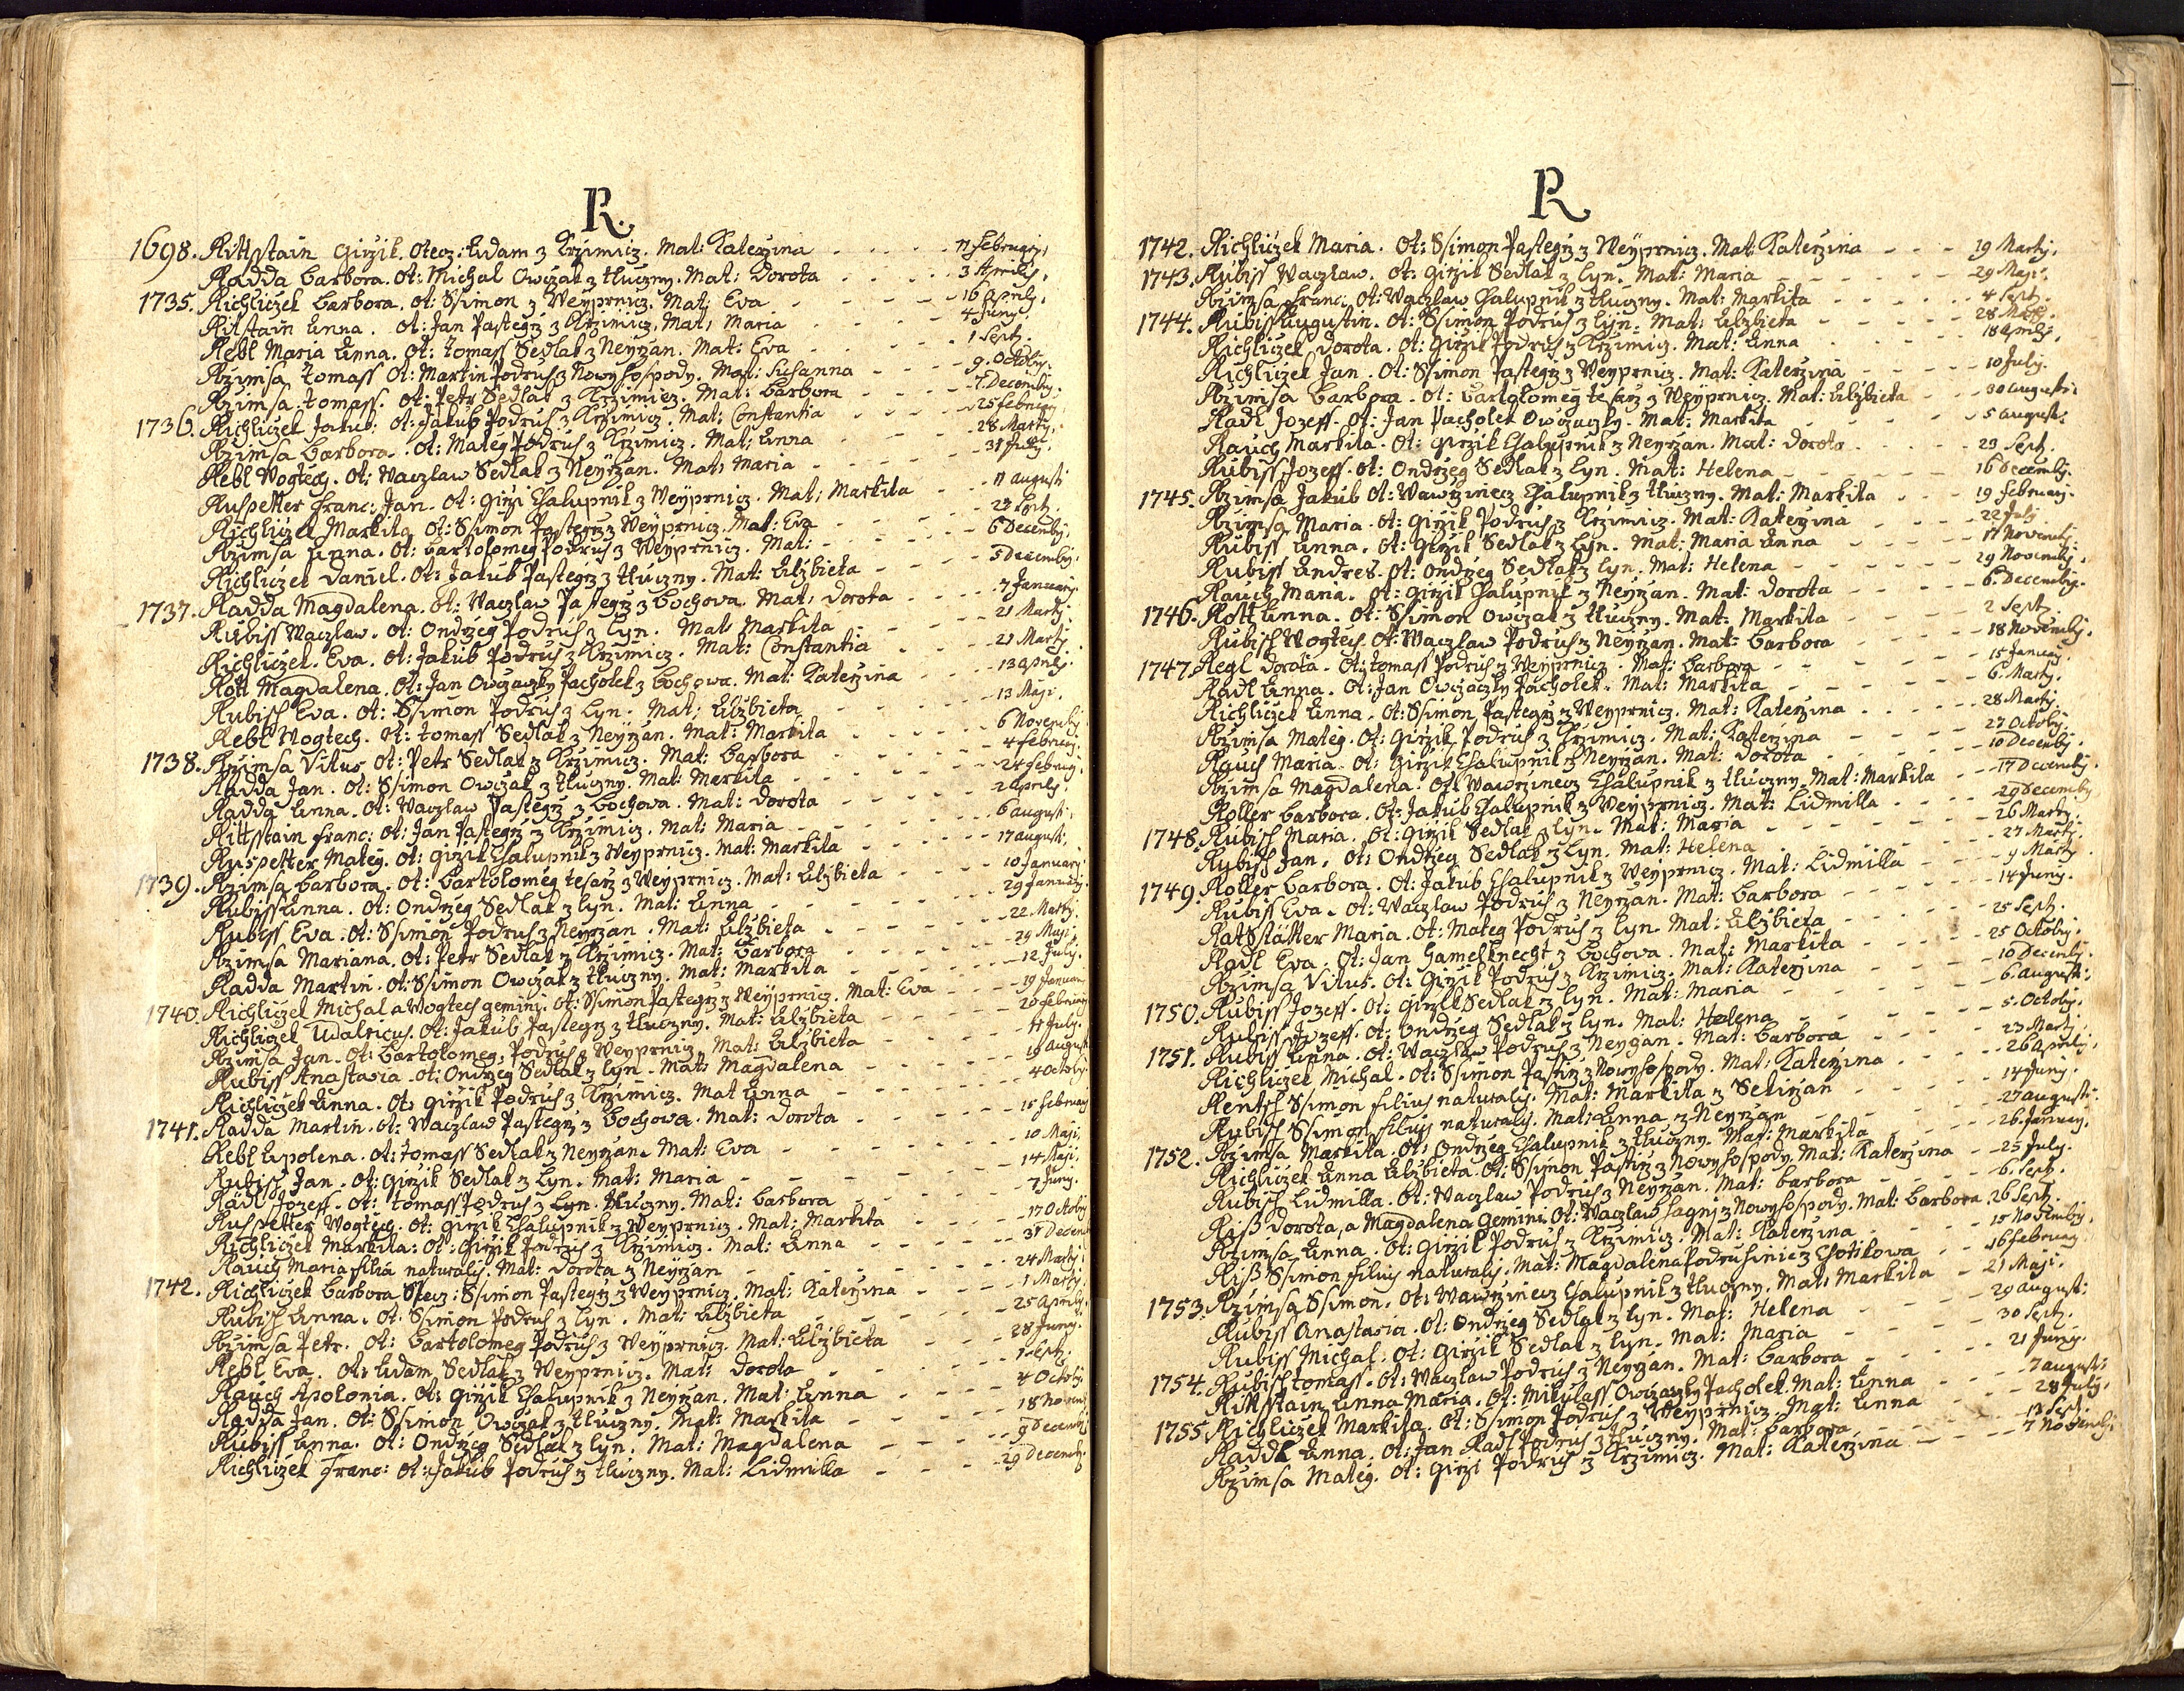 R.
1698. Rittsstain Girzik. Otecz: Adam z Krzimicz. Mat: Katerzina - - - - 11 February.
Radda Barbora. Ot: Michal Owczak z Tluczny. Mat: Dorota - - - - 3 Aprilis.
1735. Richliczek Barbora. Ot: Ssimon z Weyprnicz. Mat: Eva - - - - 16 Aprily.
Ritstain Anna. Ot: Jan Pastegrz z Krzimicz. Mat: Maria - - - - 4 Juny.
Rebl Maria Anna. Ot: Tomass Sedlak z Neyrzan. Mat: Eva - - - - 1 Sept.
Rzimsa Tomass Ot: Martin Podruh z Nowy Hospody. Mat: Susanna - - - - 9. Octobr.
Rzimsa Tomass. Ot: Petr Sedlak z Krzimicz. Mat: Barbora - - - - 7. Decembr.
1736. Richliczek Jakub. Ot: Jakub Podruh z Krzimicz. Mat: Constantia - - - - 25 February.
Rzimsa Barbora. Ot: Mateg Podruh z Krzimicz. Mat: Anna - - - - 28 Marty.
Rebl Wogtech. Ot: Waczlaw Sedlak z Neyrzan. Mat: Maria - - - - 31 July.
Ruspetter Franc: Jan. Ot: Girzi Chalupnik z Weyprnicz. Mat: Markita - - 11 Augusti
Richliczek Markita Ot: Ssimon Pastegrz z Weyprnicz. Mat: Eva - - - - 23 Sept.
Rzimsa Anna. Ot: Bartolomeg Podruh z Weyprnicz. Mat: - - - - 6 Decembr.
Richliczek Daniel. Ot: Jakub Pastegrz z Tluczny. Mat: Alzbieta - - - 5 Decembr.
1737. Radda Magdalena. Ot: Waczlaw Pastegrz z Bochova. Mat: Dorota - - - - 7 January.
Rubiss Waczlaw. Ot: Ondrzeg Podruh z Lyn. Mat: Markita - - - - 21 Marty.
Richliczek. Eva. Ot: Jakub Podruh z Krzimicz. Mat: Constantia - - - - 21 Marty.
Rott Magdalena. Ot: Jan Owczaczky Pacholek z Bochova. Mat: Katerzina - - - - 13 Aprily.
Rubisch Eva. Ot: Ssimon Podruh z Lyn. Mat: Alzbieta - - - - 13 Maji.
Rebl Wogtech. Ot: Tomass Sedlak z Neyrzan. Mat: Markita - - - - 6 Novembr.
1738. Rzimsa Vitus Ot: Petr Sedlak z Krzimicz. Mat: Barbora - - - - 4 February.
Radda Jan. Ot: Ssimon Owczak z Tluczny. Mat: Markita - - - - 24 February.
Radda Anna. Ot: Waczlaw Pastegrz z Bochova. Mat: Dorota - - - - 2 Aprily.
Rittsstain Franc: Ot: Jan Pastegrz z Krzimicz. Mat: Maria - - - - 6 Augusti.
Ruspetter Mateg. Ot: Girzik Chalupnik z Weyprnicz. Mat: Markita - - - - 17 Augusti.
1739. Rzimsa Barbora. Ot: Bartolomeg Tesarz z Weyprnicz. Mat: Alzbieta - - - - 10 January
Rubiss Anna. Ot: Ondrzeg Sedlak z Lyn. Mat: Anna - - - - 29 January.
Rubiss Eva. Ot: Ssimon Podruh z Neyrzan. Mat: Alzbieta - - - - 22 Marty.
Rzimsa Mariana. Ot: Petr Sedlak z Krzimicz. Mat: Barbora - - - - 29 Maji.
Radda Martin. Ot: Ssimon Owczak z Tluczny. Mat: Markita - - - - 12 July.
1740. Richliczek Michal a Wogtech gemini. Ot: Ssimon Pastegrz z Weyprnicz. Mat: Eva - - - 19 January
Richliczek Udalricus. Ot: Jakub Pastegrz z Tluczny. Mat: Alzbieta - - - - 20 February
Rzimsa Jan. Ot: Bartolomeg Podruh z Weyprnicz. Mat: Alzbieta - - - - 11 July.
Rubiss Anastasia. Ot: Ondrzeg Sedlak z Lyn. Mat: Magdalena - - - - 19 August
Richliczek Anna. Ot: Girzik Podruh z Krzimicz. Mat Anna - - - - 4 Octobr
1741. Radda Martin. Ot: Waczlaw Pastegrz z Bochova. Mat: Dorota - - - - 15 February
Rebl Apolena. Ot: Tomass Sedlak z Neyrzan. Mat: Eva - - - - 10 Maji.
Rubisch Jan. Ot: Girzik Sedlak z Lyn. Mat: Maria - - - - 14 Maji.
Radl Jozeff. Ot: Tomass Podruh z Lyn. Tluczny. Mat: Barbora - - - - 7 Juny.
Ruspetter Wogtech. Ot: Girzik Chalupnik z Weyprnicz. Mat: Markita - - - - 17 Octobr
Richliczek Markita: Ot: Girzik Podruh z Krzimicz. Mat: Anna - - - - 31 Decem
Rauch Maria filia naturalis. Mat: Dorota z Neyrzan - - - - 24 Marty.
1742. Richliczek Barbora Otecz: Ssimon Pastegrz z Weyprnicz. Mat: Katerzina - - - - 1 Marty.
Rubisch Anna. Ot: Ssimon Podruh z Lyn. Mat: Alzbieta - - - - 25 Aprily.
Rzimsa Petr. Ot: Bartolomeg Podruh z Weyprnicz. Mat: Alzbieta - - - - 28 Juny.
Rebl Eva. Ot: Adam Sedlak z Weyprnicz. Mat: Dorota - - - - 1 Sept.
Rauch Apolonia. Ot: Girzik Chalupnik z Neyrzan. Mat: Anna - - - - 4 Octobr
Radda Jan. Ot: Ssimon Owczak z Tluczny. Mat: Markita - - - - 18 Novem
Rubiss Anna. Ot: Ondrzeg Sedlak z Lyn. Mat: Magdalena - - - - 9 Decembr
Richliczek Franc: Ot: Jakub Podruh z Tluczny. Mat: Lidmilla - - - - 29 Decemb
R
1742. Richliczek Maria. Ot: Ssimon Pastegrz z Weyprnicz. Mat: Katerzina - - - 19 Marty.
1743. Rubiss Waczlaw. Ot: Girzik Sedlak z Lyn. Mat: Maria - - - - 29 Maji.
Rzimsa Franc: Ot: Waczlaw Chalupnik z Tluczny. Mat: Markita - - - - 4 Sept.
1744. Rubiss Augustin. Ot: Ssimon Podruh z Lyn. Mat: Alzbieta - - - - 28 Marty.
Richliczek Dorota. Ot: Girzik Podruh z Krzimicz. Mat: Anna - - - - 18 Aprily.
Richliczek Jan. Ot: Ssimon Pastegrz z Weyprnicz. Mat: Katerzina - - - - 10 July.
Rzimsa Barbora. Ot: Bartolomeg Tesarz z Weyprnicz. Mat: Alzbieta - - - 30 Augusti.
Radl Jozeff. Ot: Jan Pacholek Owczaczky. Mat: Markita - - - - 5 August.
Rauch Markita. Ot: Girzik Chalupnik z Neyrzan. Mat: Dorota - - - - 29 Sept.
Rubiss Jozeff. Ot: Ondrzeg Sedlak z Lyn. Mat: Helena - - - - 16 Decembr.
1745. Rzimsa Jakub Ot: Wawrzinecz Chalupnik z Tluczny. Mat: Markita - - - 19 February.
Rzimsa Maria. Ot: Girzik Podruh z Krzimicz. Mat: Katerzina - - - - 22 July
Rubiss Anna. Ot: Girzik Sedlak z Lyn. Mat: Maria Anna - - - - 17 Novembr.
Rubiss Andres. Ot: Ondrzeg Sedlak z Lyn. Mat: Helena - - - - 29 Novembr.
Rauch Maria. Ot: Girzik Chalupnik z Neyrzan. Mat: Dorota - - - - 6. Decembr.
1746. Rott Anna. Ot: Ssimon Owczak z Tluczny. Mat: Markita - - - - 2 Sept.
Rubisch Wogtech. Ot: Waczlaw Podruh z Neyrzan. Mat: Barbora - - - - 18 Novembr.
1747. Regl Dorota. Ot: Tomass Podruh z Weyprnicz. Mat: Barbora - - - - 15 January.
Radl Anna. Ot: Jan Owczaczky Pacholek. Mat: Markita - - - - 6. Marty.
Richliczek Anna. Ot: Ssimon Pastegrz z Weyprnicz. Mat: Katerzina - - - - 28 Marty.
Rzimsa Mateg. Ot: Girzik Podruh z Krzimicz. Mat: Katerzina - - - - 27 Octobr.
Rauch Maria. Ot: Girzik Chalupnik z Neyrzan. Mat: Dorota - - - - 10 Decembr.
Rzimsa Magdalena. Ot: Wawrzinecz Chalupnik z Tluczny. Mat: Markita - - - 17 Decembr.
Roller Barbora. Ot: Jakub Chalupnik z Weyprnicz. Mat: Lidmilla - - - - 29 Decembr
1748. Rubisch Maria. Ot: Girzik Sedlak z Lyn. Mat: Maria - - - - 26 Marty.
Rubisch Jan. Ot: Ondrzeg Sedlak z Lyn. Mat: Helena - - - - 27 Marty.
1749. Roller Barbora. Ot: Jakub Chalupnik z Weyprnicz. Mat: Lidmilla - - - - 9 Marty.
Rubiss Eva. Ot: Waczlaw Podruh z Neyrzan. Mat: Barbora - - - - 14 Juny.
Mateg Podruh z Lyn. Mat: Alzbieta - - - - 25 Sept.
Radl Eva. Ot: Jan Hamelknecht z Bochova. Mat: Markita - - - - 25 Octobr.
Rzimsa Vitus. Ot: Girzik Podruh z Krzimicz. Mat: Katerzina - - - - 10 Decembr.
1750. Rubiss Jozeff. Ot: Girzik Sedlak z Lyn. Mat: Maria - - - - 6 August.
Rubiss Jozeff. Ot: Ondrzeg Sedlak z Lyn. Mat: Helena - - - - 5. Octobr.
1751. Rubiss Anna. Ot: Waczlaw Podruh z Neyrzan. Mat: Barbora - - - - 23 Marty.
Richliczek Michal. Ot: Ssimon Pastirz z Nowy Hospody. Mat: Katerzina - - - - 26 Aprily.
Rentsch Ssimon filius naturalis. Mat: Markita z - - - - 14 Juny.
Rubisch Ssimon filius naturalis. Mat: Anna z Neyrzan - - - - 27 Augusti.
1752. Rzimsa Markita. Ot: Ondrzeg Chalupnik z Tluczny. Mat: Markita - - - - 26. January.
Richliczek Anna Alzbieta. Ot: Ssimon Pastirz z Nowy Hospody. Mat: Katerzina - - 25 July.
Rubisch Lidmilla. Ot: Waczlaw Podruh z Neyrzan. Mat: Barbora - - - - 6. Sept.
Riß Dorota, a Magdalena Gemini. Ot: Waczlaw Hagny z Nowy Hospody. Mat: Barbora 26 Sept.
Rzimsa Anna. Ot: Girzik Podruh z Krzimicz. Mat: Katerzina - - - - 15 Novembr.
Riß Ssimon filius naturalis. Mat: Magdalena Podruhinie z Chotikowa - - 16 February.
1753. Rzimsa Ssimon. Ot: Wawrzinecz Chalupnik z Tluczny. Mat: Markita - - 21 Maji.
Rubiss Anastasia. Ot: Ondrzeg Sedlak z Lyn. Mat: Helena - - - - 29 Augusti
Rubiss Michal. Ot: Girzik Sedlak z Lyn. Mat: Maria - - - - 30 Sept.
1754. Rubisch Tomass. Ot: Waczlaw Podruh z Neyrzan. Mat: Barbora - - - - 21 Juny.
Rittstain Anna Maria. Ot: Mikulass Owczaczky Pacholek. Mat: Anna - - - - 7 Augusti
1755. Richliczek Markita. Ot: Ssimon Podruh z Weyprnicz. Mat: Anna - - - - 28 July.
Raddl Anna. Ot: Jan Radl Podruh z Tluczny. Mat: Barbora - - - - 13 Sept.
Rzimsa Mateg. Ot: Girzi Podruh z Krzimicz. Mat: Katerzina - - - - 7 Novembr.